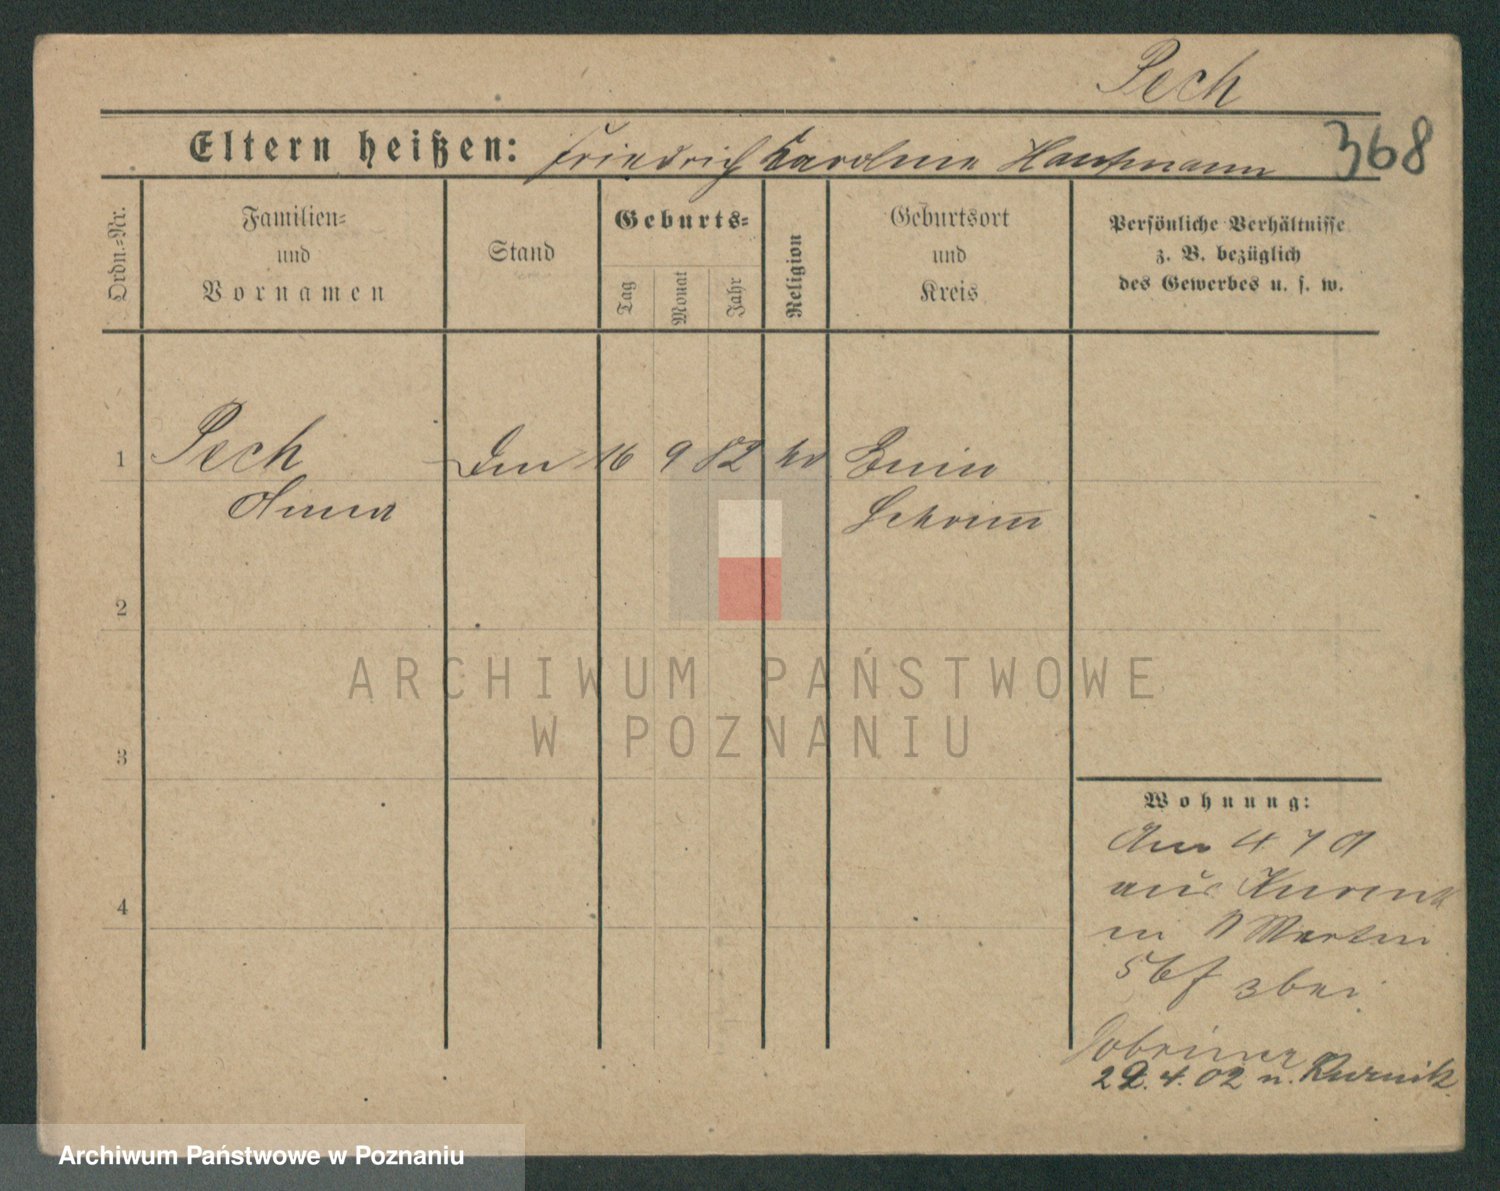 Pech
Eltern heißen: Friedrich Karoline Haufmann
368
Ordn.-Nr.
Familien-
und
Vornamen
Stand
Geburts-
Tag
Monat
Jahr
Religion
Geburtsort
und
Kreis
Persönliche Verhältnisse
z. B. bezüglich
des Gewerbes u. s. w.
1 Pech 16 9 82 Bnin
Anna Schrimm
2
3
4
Wohnung:
aus Kurnik
in Martin
bei
22.4.02 n. Kurnik
ARCHIWUM PAŃSTWOWE
W POZNANIU
Archiwum Państwowe w Poznaniu